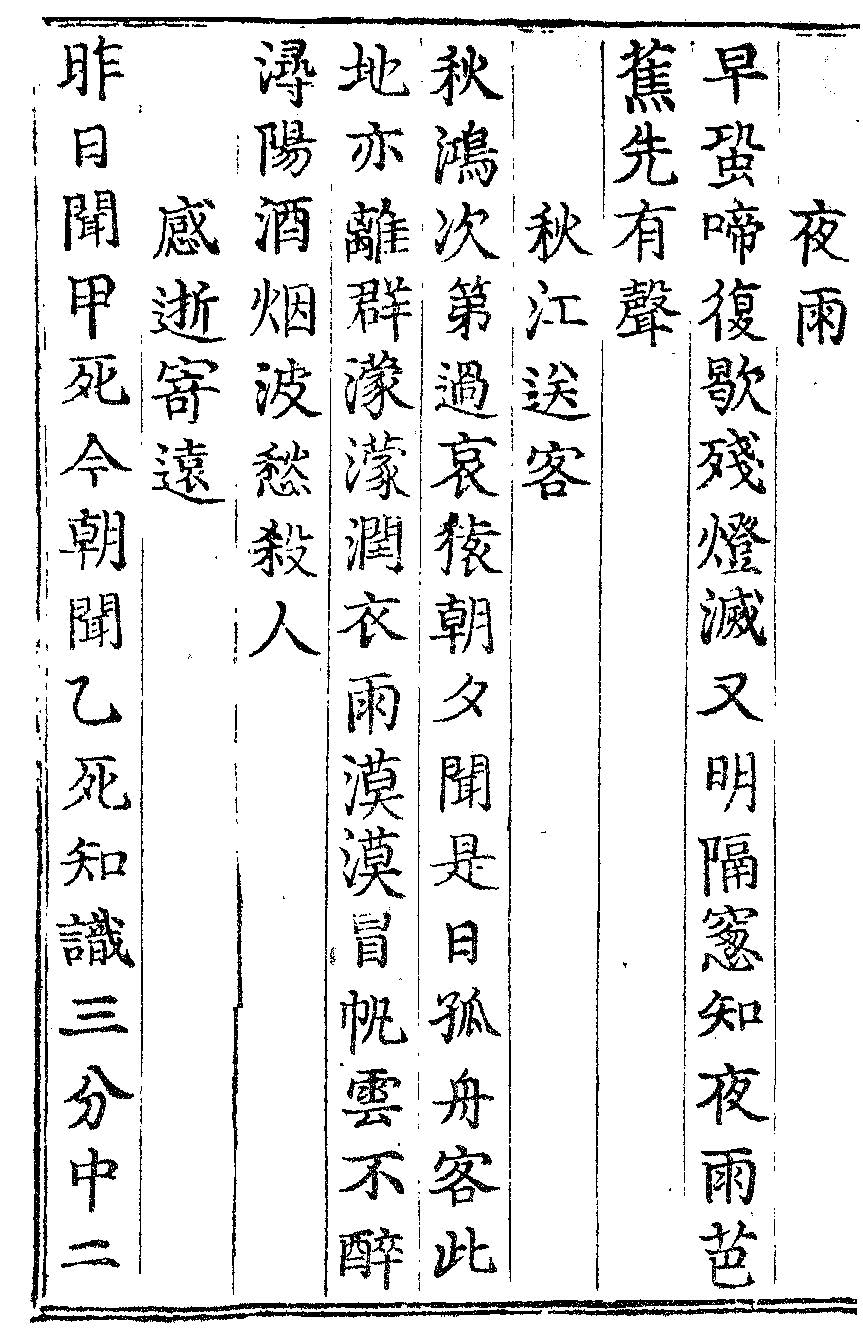 夜雨
早蛩啼復歇殘燈滅又明隔窻知夜雨芭
蕉先有聲
秋江送客
秋鴻次第過哀猿朝夕聞是日孤舟客此
地亦離群濛濛潤衣雨漠漠冒帆雲不醉
潯陽酒烟波愁殺人
感逝寄遠
昨日聞甲死今朝聞乙死知識三分中二